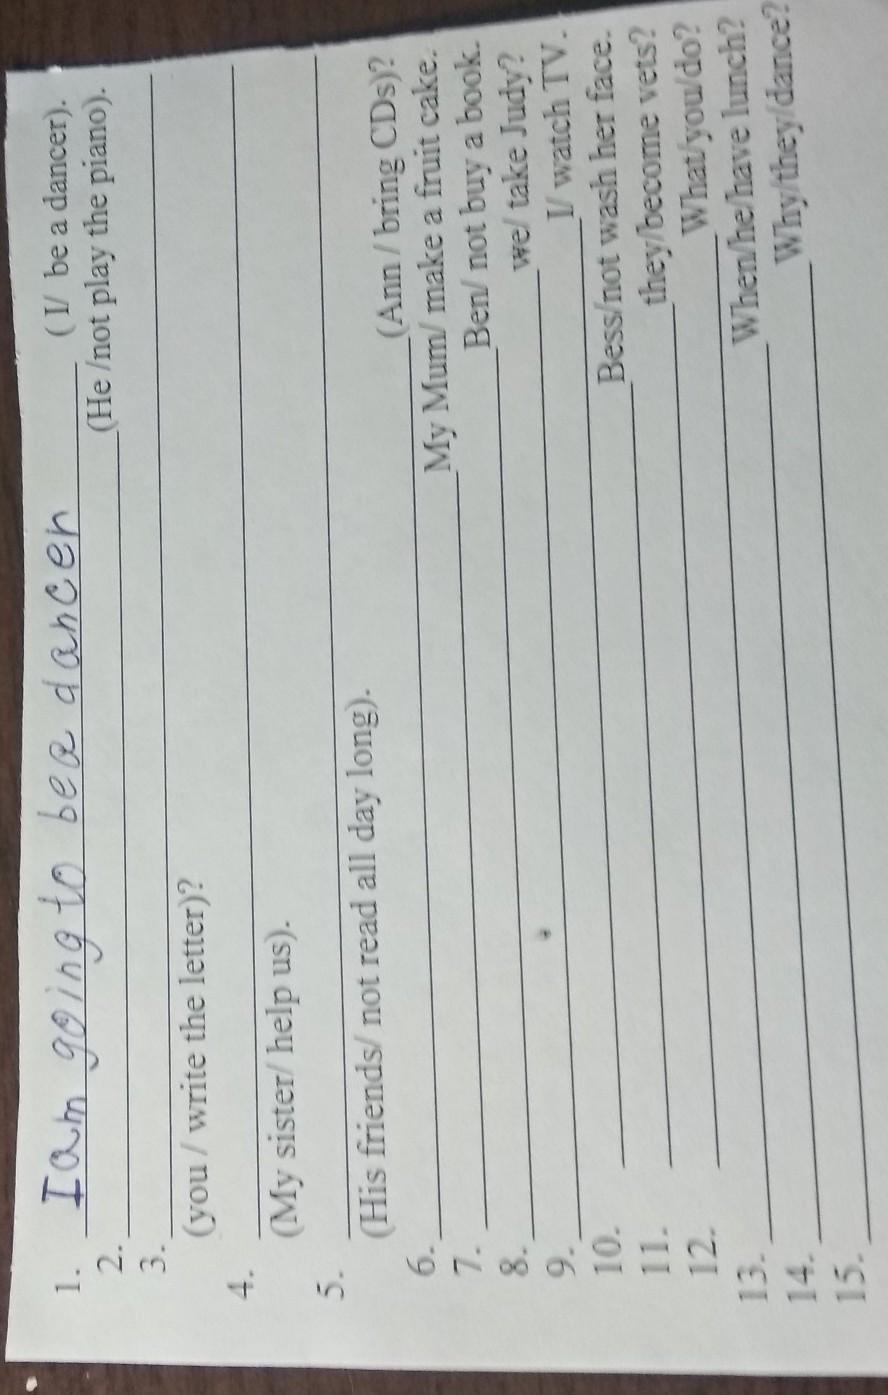 1. I am going to be a dancer ( I/ be a dancer).
2. (He /not play the piano).
3.
(you / write the letter)?
4.
(My sister/ help us).
5.
(His friends/ not read all day long).
6. (Ann / bring CDs)?
7. My Mum/ make a fruit cake.
8. Ben/ not buy a book.
9. we/ take Judy?
10. I/ watch TV.
11. Bess/not wash her face.
12. they/become vets?
13. What/you/do?
14. When/he/have lunch?
15. Why/they/dance?